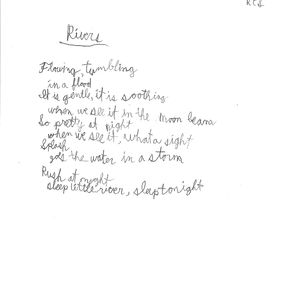 Rivers
Flowing, tumbling
in a flood
It is gentle, it is soothing
when we see it in the moon beams
So pretty at night
when we see it, what a sight
Splash
gos the water in a storm
Rush at night
sleep little river, sleep tonight